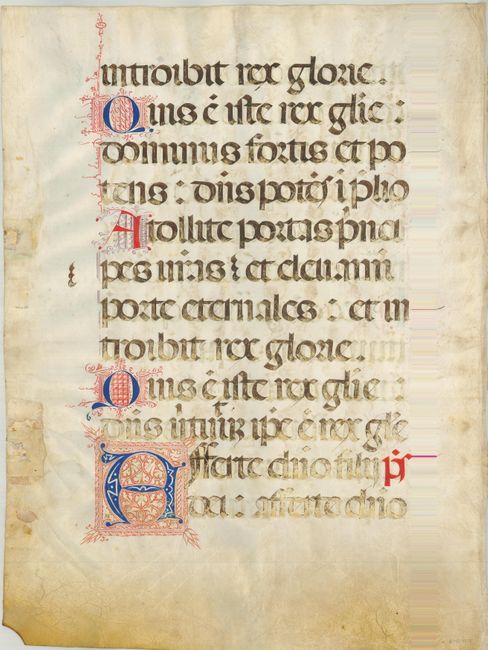 introibit rex glorie.
Quis ē iste rex glīe :
dominus fortis et po
tens : dn̄s potēs ī p̄lio
Atollite portas p̄nci
pes vr̄as et eleuamini
porte eternales : et in
troibit rex glorie.
Quis ē iste rex glīe :
dn̄s ūtutū ip̄e ē rex glīe
Afferte dn̄o filij p̄s
dei : afferte dn̄o